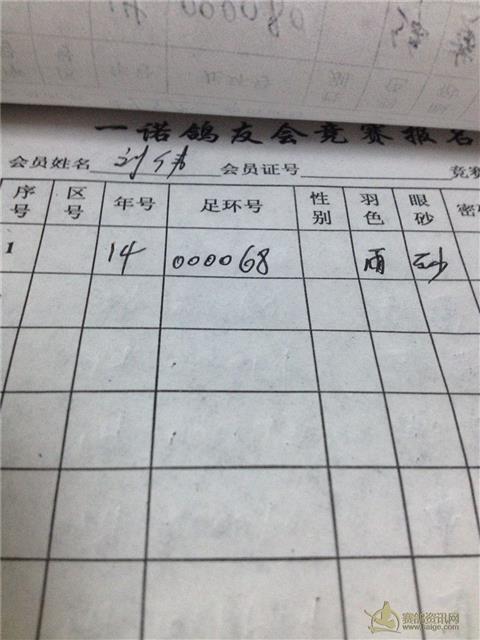 一诺鸽友会竞赛报名
会员姓名 刘伟 会员证号 竞赛
序号 区号 年号 足环号 性别 羽色 眼砂 密
1 14 000068 雨 砂
赛鸽资讯网
www.saige.com